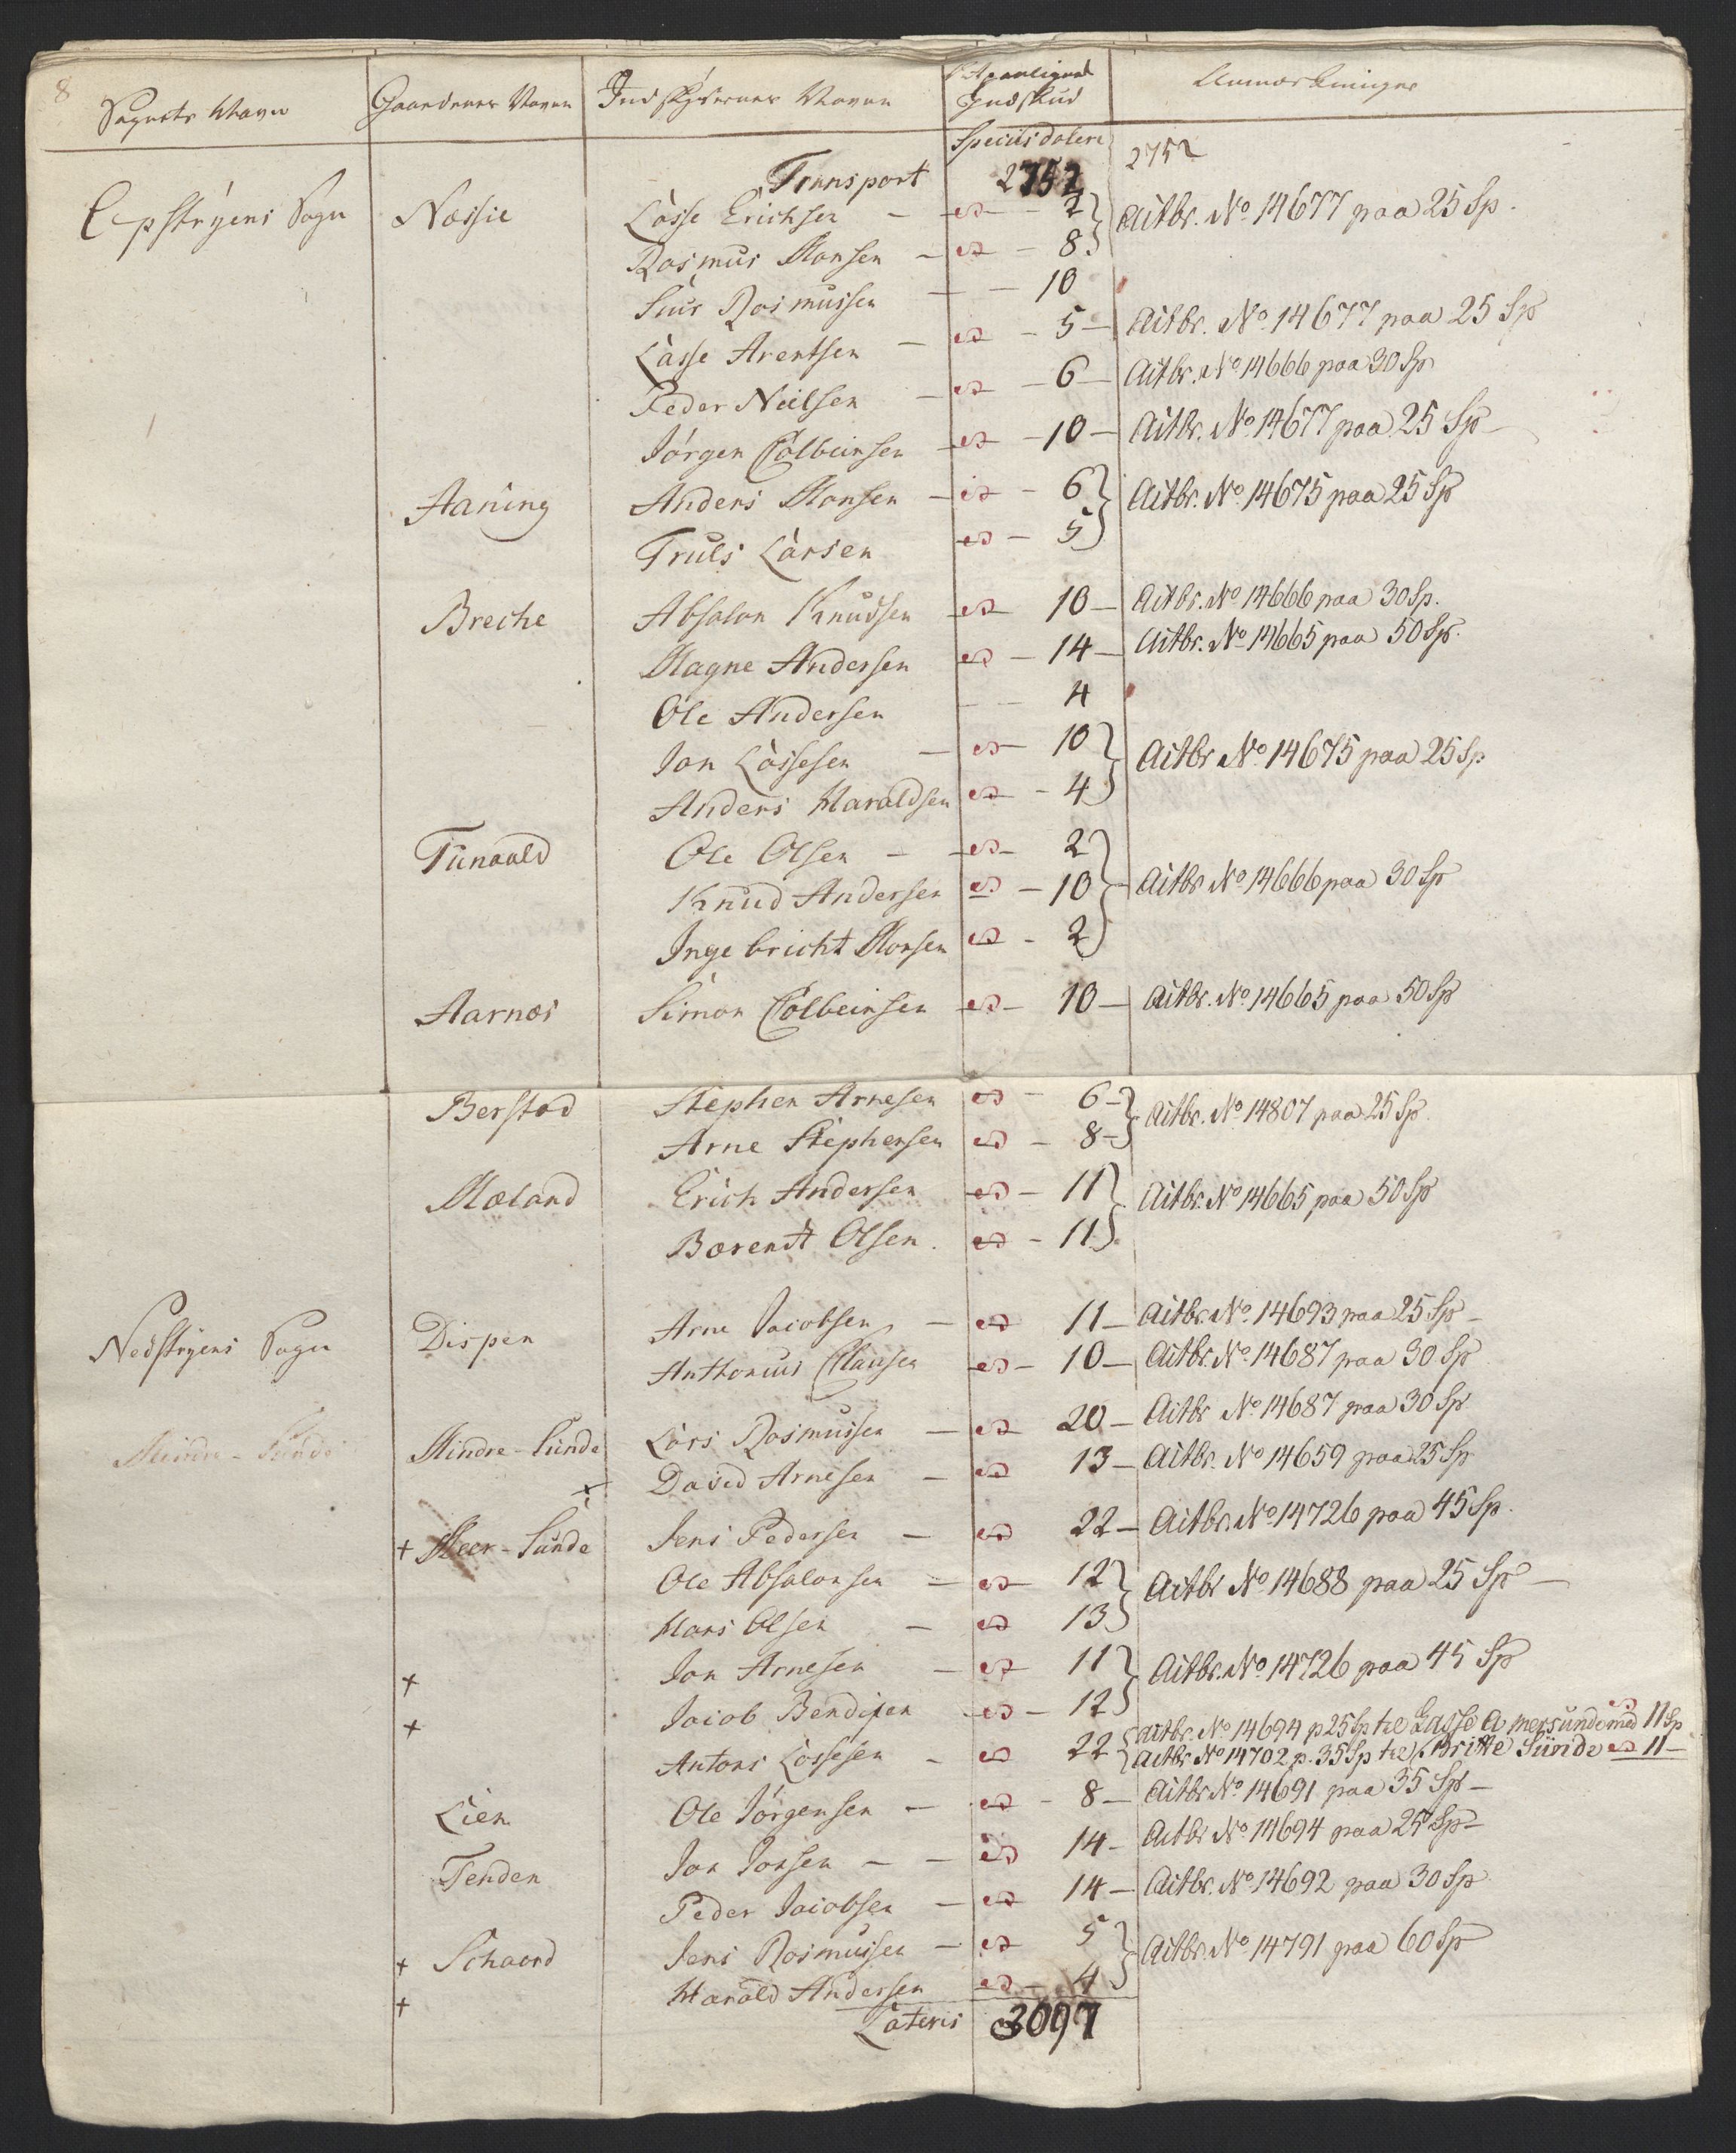 8
Sognets Navn Gaardenes Navne Indskydernes Navne Paalignet Indskud Anmærkninger
Speciesdalere
Transport 2752 2752
Opstryens Sogn Næssie Lasse Erichsen — 2 } Actbr. No 14677 paa 25 Sp.
Rasmus Monsen — 8 }
Siur Rasmussen — 10
Lasse Arentsen — 5 — Actbr. No 14677 paa 25 Sp
Peder Neilsen — 6 — Actbr. No 14666 paa 30 Sp
Jørgen Colbeinsen — 10 — Actbr. No 14677 paa 25 Sp
Aaning Anders Monsen — 6 } Actbr. No 14675 paa 25 Sp
Truls Larsen — 5 }
Breche Absalon Knudsen — 10 — Actbr. No 14666 paa 30 Sp.
Magne Andersen — 14 — Actbr. No 14665 paa 50 Sp.
Ole Andersen 4
Jon Lassesen — 10 } Actbr No 14675 paa 25 Sp
Anders Haraldsen — 4 }
Tunaald Ole Olsen — 2 }
Knud Andersen — 10 } Actbr No 14666 paa 30 Sp
Ingebricht Monsen — 2 }
Aarnæs Simon Colbeinsen — 10 — Actbr. No 14665 paa 50 Sp
Berstad Stephen Arnesen — 6 } Actbr. No 14807 paa 25 Sp
Arne Stephensen — 8 }
Mæland Erich Andersen — 11 } Actbr. No 14665 paa 50 Sp
Bærent Olsen — 11 }
Nedstryens Sogn Dispen Arne Jacobsen — 11 — Actbr. No 14693 paa 25 Sp
Anthonius Clausen — 10 — Actbr. No 14687 paa 30 Sp
Mindre-Sunde Mindre-Sunde Lars Rasmussen — 20 — Actbr No 14687 paa 30 Sp
+ David Arnesen — 13 — Actbr. No 14659 paa 25 Sp
+ Meer-Sunde Jens Pedersen — 22 — Actbr. No 14726 paa 45 Sp.
Ole Absalonsen — 12 } Actbr No 14688 paa 25 Sp —
Hans Olsen — 13 }
+ Jon Arnesen — 11 } Actbr. No 14726 paa 45 Sp
+ Jacob Bendixen — 12 }
Antons Lassesen — 22 { Actbr. No 14694 p 25 Sp til Lasse A Mersunde med 11 Sp
{ Actbr No 14702 p. 35 Sp til Britte Sunde 11 —
Lien Ole Jørgensen — 8 — Actbr No 14691 paa 35 Sp —
Tenden Jon Jonsen — 14 — Actbr No 14694 paa 25 Sp —
Peder Jacobsen — 14 — Actbr. No 14692 paa 30 Sp
+ Schaard Jens Rasmussen — 5 } Actbr. No 14791 paa 60 Sp
+ Harald Andersen — 4 }
Lateris 3097